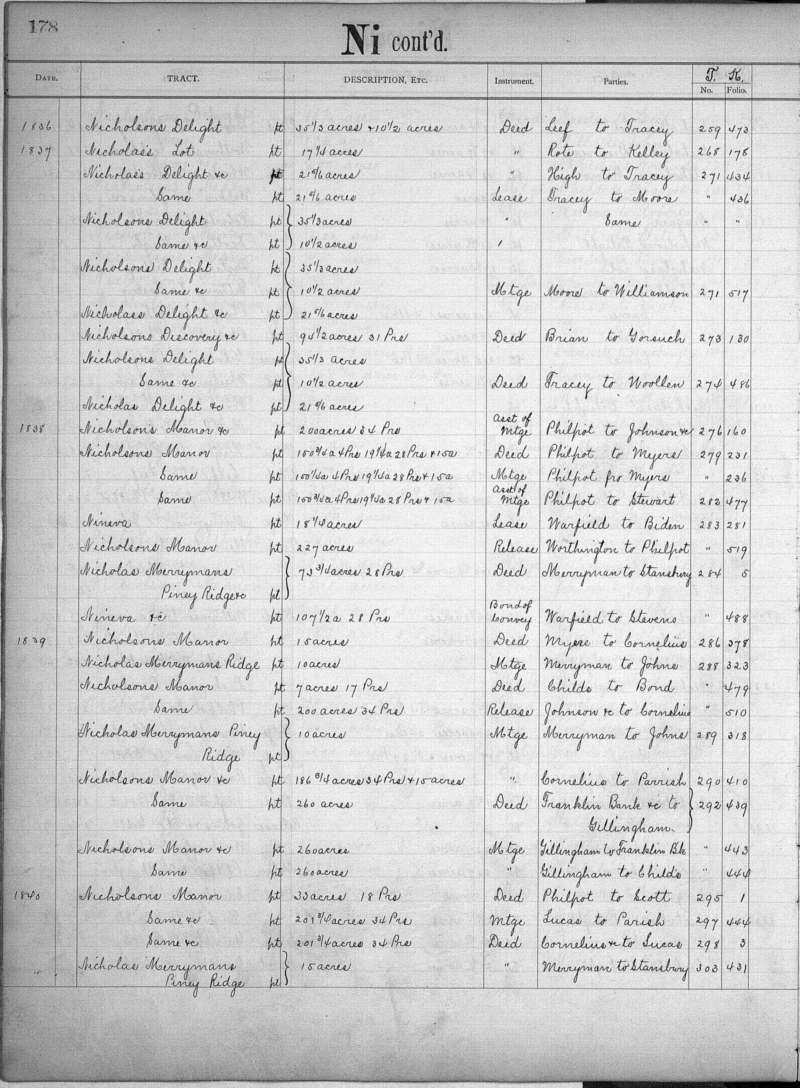 178
Ni cont'd.
T. K.
DATE. TRACT. DESCRIPTION, ETC. Instrument. Parties. No. Folio.
1836 Nicholsons Delight pt 35 1/3 acres + 10 1/2 acres Deed Leef to Tracey 259 473
1837 Nicholass Lot pt 17 1/4 acres " Rote to Kelley 268 178
Nicholass Delight &c pt 21 acres " High to Tracey 271 434
Same pt 21 acres Lease Tracey to Moore " 436
Nicholsons Delight pt 35 1/3 acres " Same " "
Same &c pt 10 1/2 acres
Nicholsons Delight pt 35 1/3 acres
Same &c pt 10 1/2 acres Mtge Moore to Williamson 271 517
Nicholass Delight &c pt 21 acres
Nicholsons Discovery &c pt 94 1/2 acres 31 Prs Deed Brian to Gorsuch 273 130
Nicholsons Delight pt 35 1/3 acres
Same &c pt 10 1/2 acres Deed Tracey to Woollen 274 486
Nicholas Delight &c pt 21 acres
1838 Nicholsons Manor &c pt 200 acres 34 Prs Asst of Mtge Philpot to Johnson &c 276 160
Nicholsons Manor pt 150 3/4 a 4 Prs 19 1/4 a 28 Prs & 15 a Deed Philpot to Myers 279 231
Same pt 4 Prs 19 1/4 a 28 Prs & 15 a Mtge Philpot fro Myers " 236
Same pt 150 3/4 a 4 Prs 19 1/4 a 28 Prs & 15 a Asst of Mtge Philpot to Stewart 282 477
Nineva pt 18 1/4 acres Lease Warfield to Biden 283 281
Nicholsons Manor pt 227 acres Release Worthington to Philpot " 519
Nicholas Merrymans pt 73 3/4 acres 28 Prs Deed Merryman to Stansbury 284 5
Piney Ridge &c pt
Nineva &c pt 107 1/2 a 28 Prs Bond of Convey Warfield to Stevens " 488
1839 Nicholsons Manor pt 15 acres Deed Myers to Cornelius 286 378
Nicholas Merrymans Ridge pt 10 acres Mtge Merryman to Johns 288 323
Nicholsons Manor pt 7 acres 17 Prs Deed Childs to Bond " 479
Same pt 200 acres 34 Prs Release Johnson &c to Cornelius " 510
Nicholas Merrymans Piney 10 acres Mtge Merryman to Johns 289 318
Ridge pt
Nicholsons Manor &c pt 186 3/4 acres 34 Prs & 15 acres " Cornelius to Parrish 290 410
Same pt 260 acres Deed Franklin Bank &c to 292 439
Gillingham
Nicholsons Manor &c pt 260 acres Mtge Gillingham to Franklin Bk " 443
Same pt 260 acres " Gillingham to Childs " 444
1840 Nicholsons Manor pt 33 acres 18 Prs Deed Philpot to Scott 295 1
Same &c pt 201 3/4 acres 34 Prs Mtge Lucas to Parish 297 444
Same &c pt 201 3/4 acres 34 Prs Deed Cornelius &c to Lucas 298 3
" Nicholas Merrymans 15 acres " Merryman to Stansbury 303 431
Piney Ridge pt